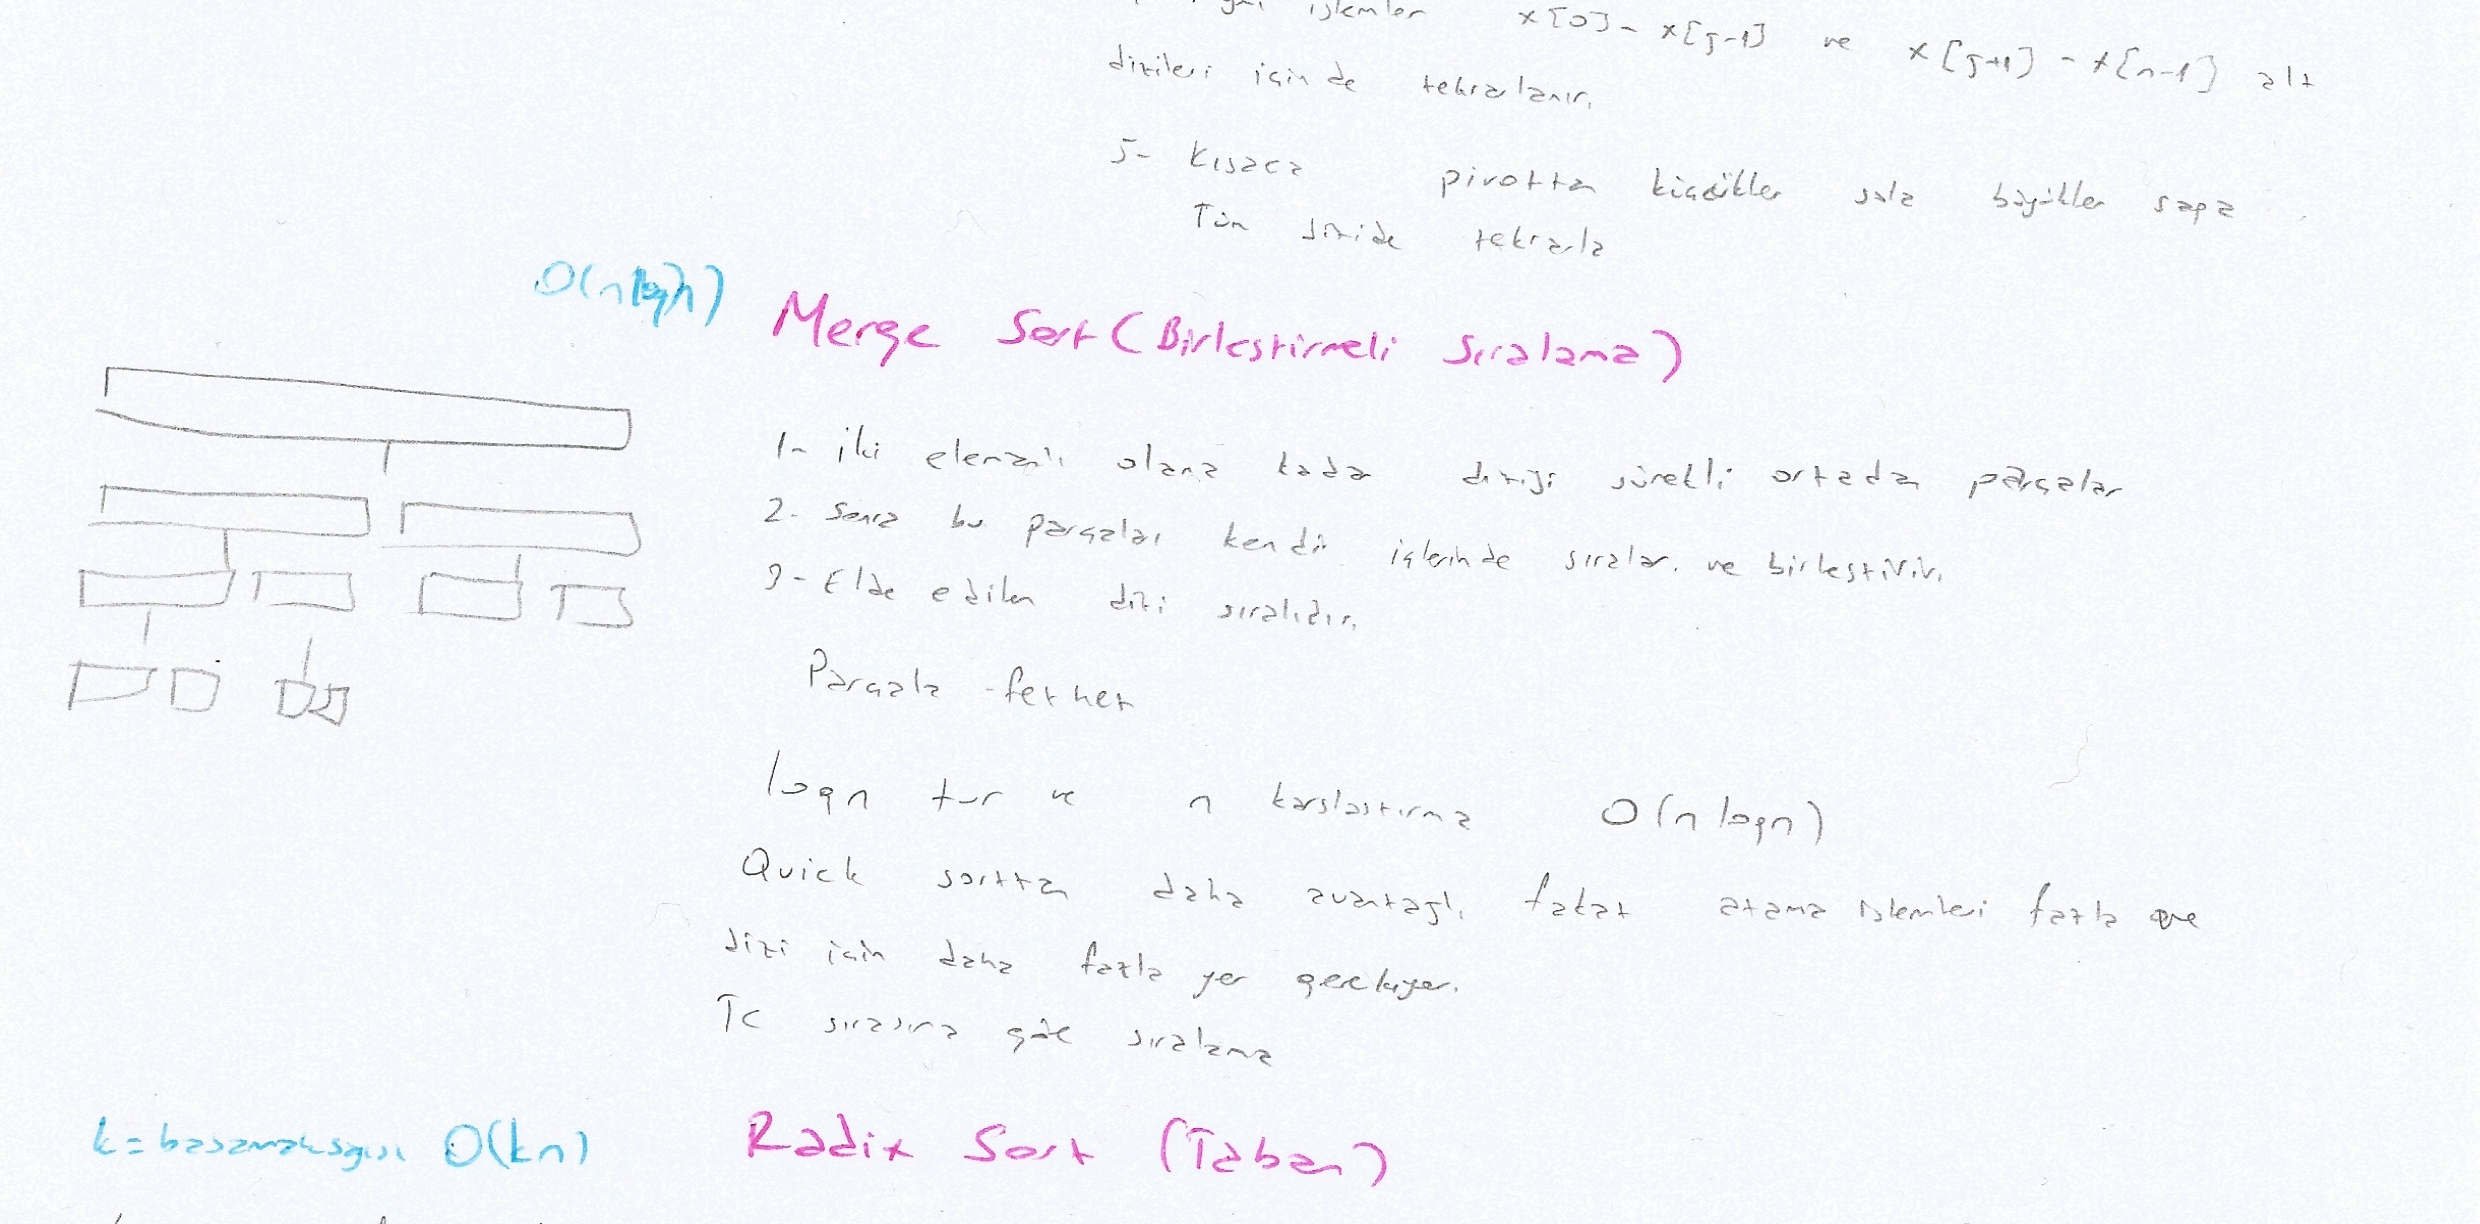 işlemler x[0] - x[j-1] ve x[j+1] - x[n-1] alt
dizileri içinde tekrarlanır.
5- Kısaca pivottan küçükler sola büyükler sağa
Tüm dizide tekrarla
O(n logn)
Merge Sort (Birleştirmeli Sıralama)
1- iki elemanlı olana kadar diziyi sürekli ortadan parçalar
2- Sonra bu parçaları kendi içlerinde sıralar. ve birleştirir.
3- Elde edilen dizi sıralıdır.
Parçala - fethet
logn tur ve n karşılaştırma O(n logn)
Quick sorttan daha avantajlı fakat atama işlemleri fazla ve
dizi için daha fazla yer gerekiyor.
TC sırasına göre sıralama
k = basamaksayısı O(kn)
Radix Sort (Taban)